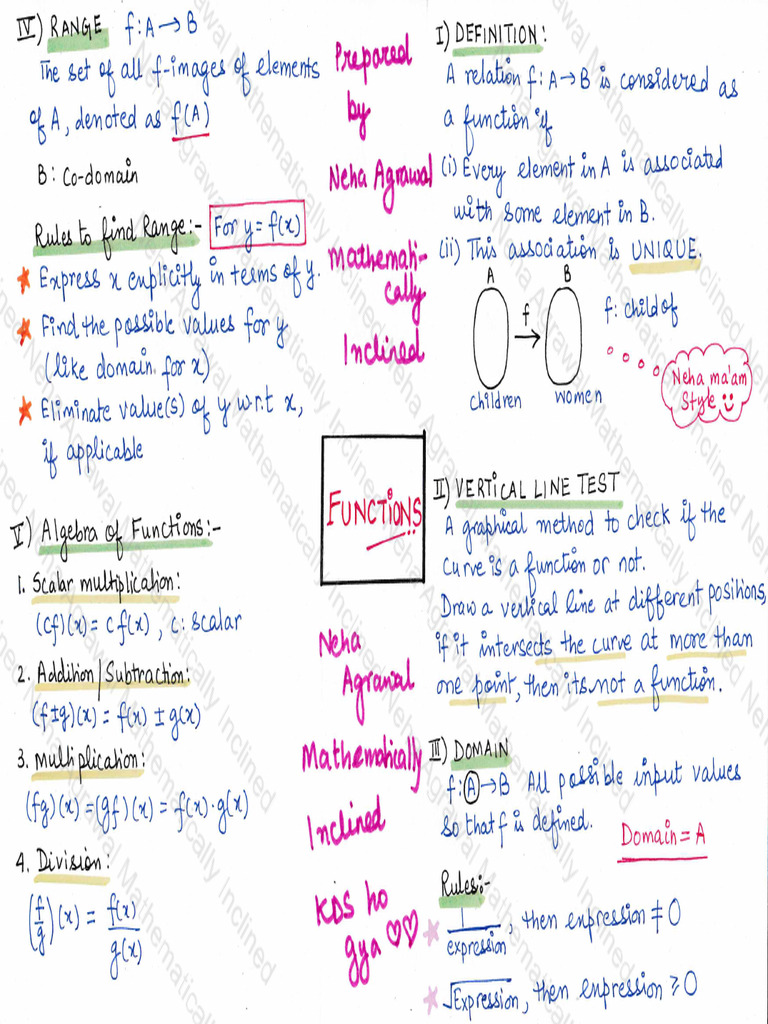 IV) RANGE f: A → B
The set of all f-images of elements
of A, denoted as f(A)
B: Co-domain
Rules to find Range:- For y = f(x)
★ Express x explicitly in terms of y.
★ Find the possible values for y
(like domain for x)
★ Eliminate value(s) of y w.r.t x,
if applicable
V) Algebra of Functions:-
1. Scalar multiplication:
(cf)(x) = c f(x), c: scalar
2. Addition | Subtraction:
(f±g)(x) = f(x) ± g(x)
3. Multiplication:
(fg)(x) = (gf)(x) = f(x)·g(x)
4. Division:
(f/g)(x) = f(x)/g(x)
Prepared
by
Neha Agrawal
Mathemati-
cally
Inclined
FUNCTIONS
Neha
Agrawal
Mathematically
Inclined
KDS ho
gya ♡♡
I) DEFINITION:
A relation f: A→B is considered as
a function if
(i) Every element in A is associated
with some element in B.
(ii) This association is UNIQUE.
A B
f
f: child of
children women
Neha ma'am
Style
II) VERTICAL LINE TEST
A graphical method to check if the
curve is a function or not.
Draw a vertical line at different positions,
if it intersects the curve at more than
one point, then its not a function.
III) DOMAIN
f: A → B All possible input values
so that f is defined.
Domain = A
Rules:-
★ 1/expression, then expression ≠ 0
★ √Expression, then expression ≥ 0
Neha Agrawal Mathematically Inclined